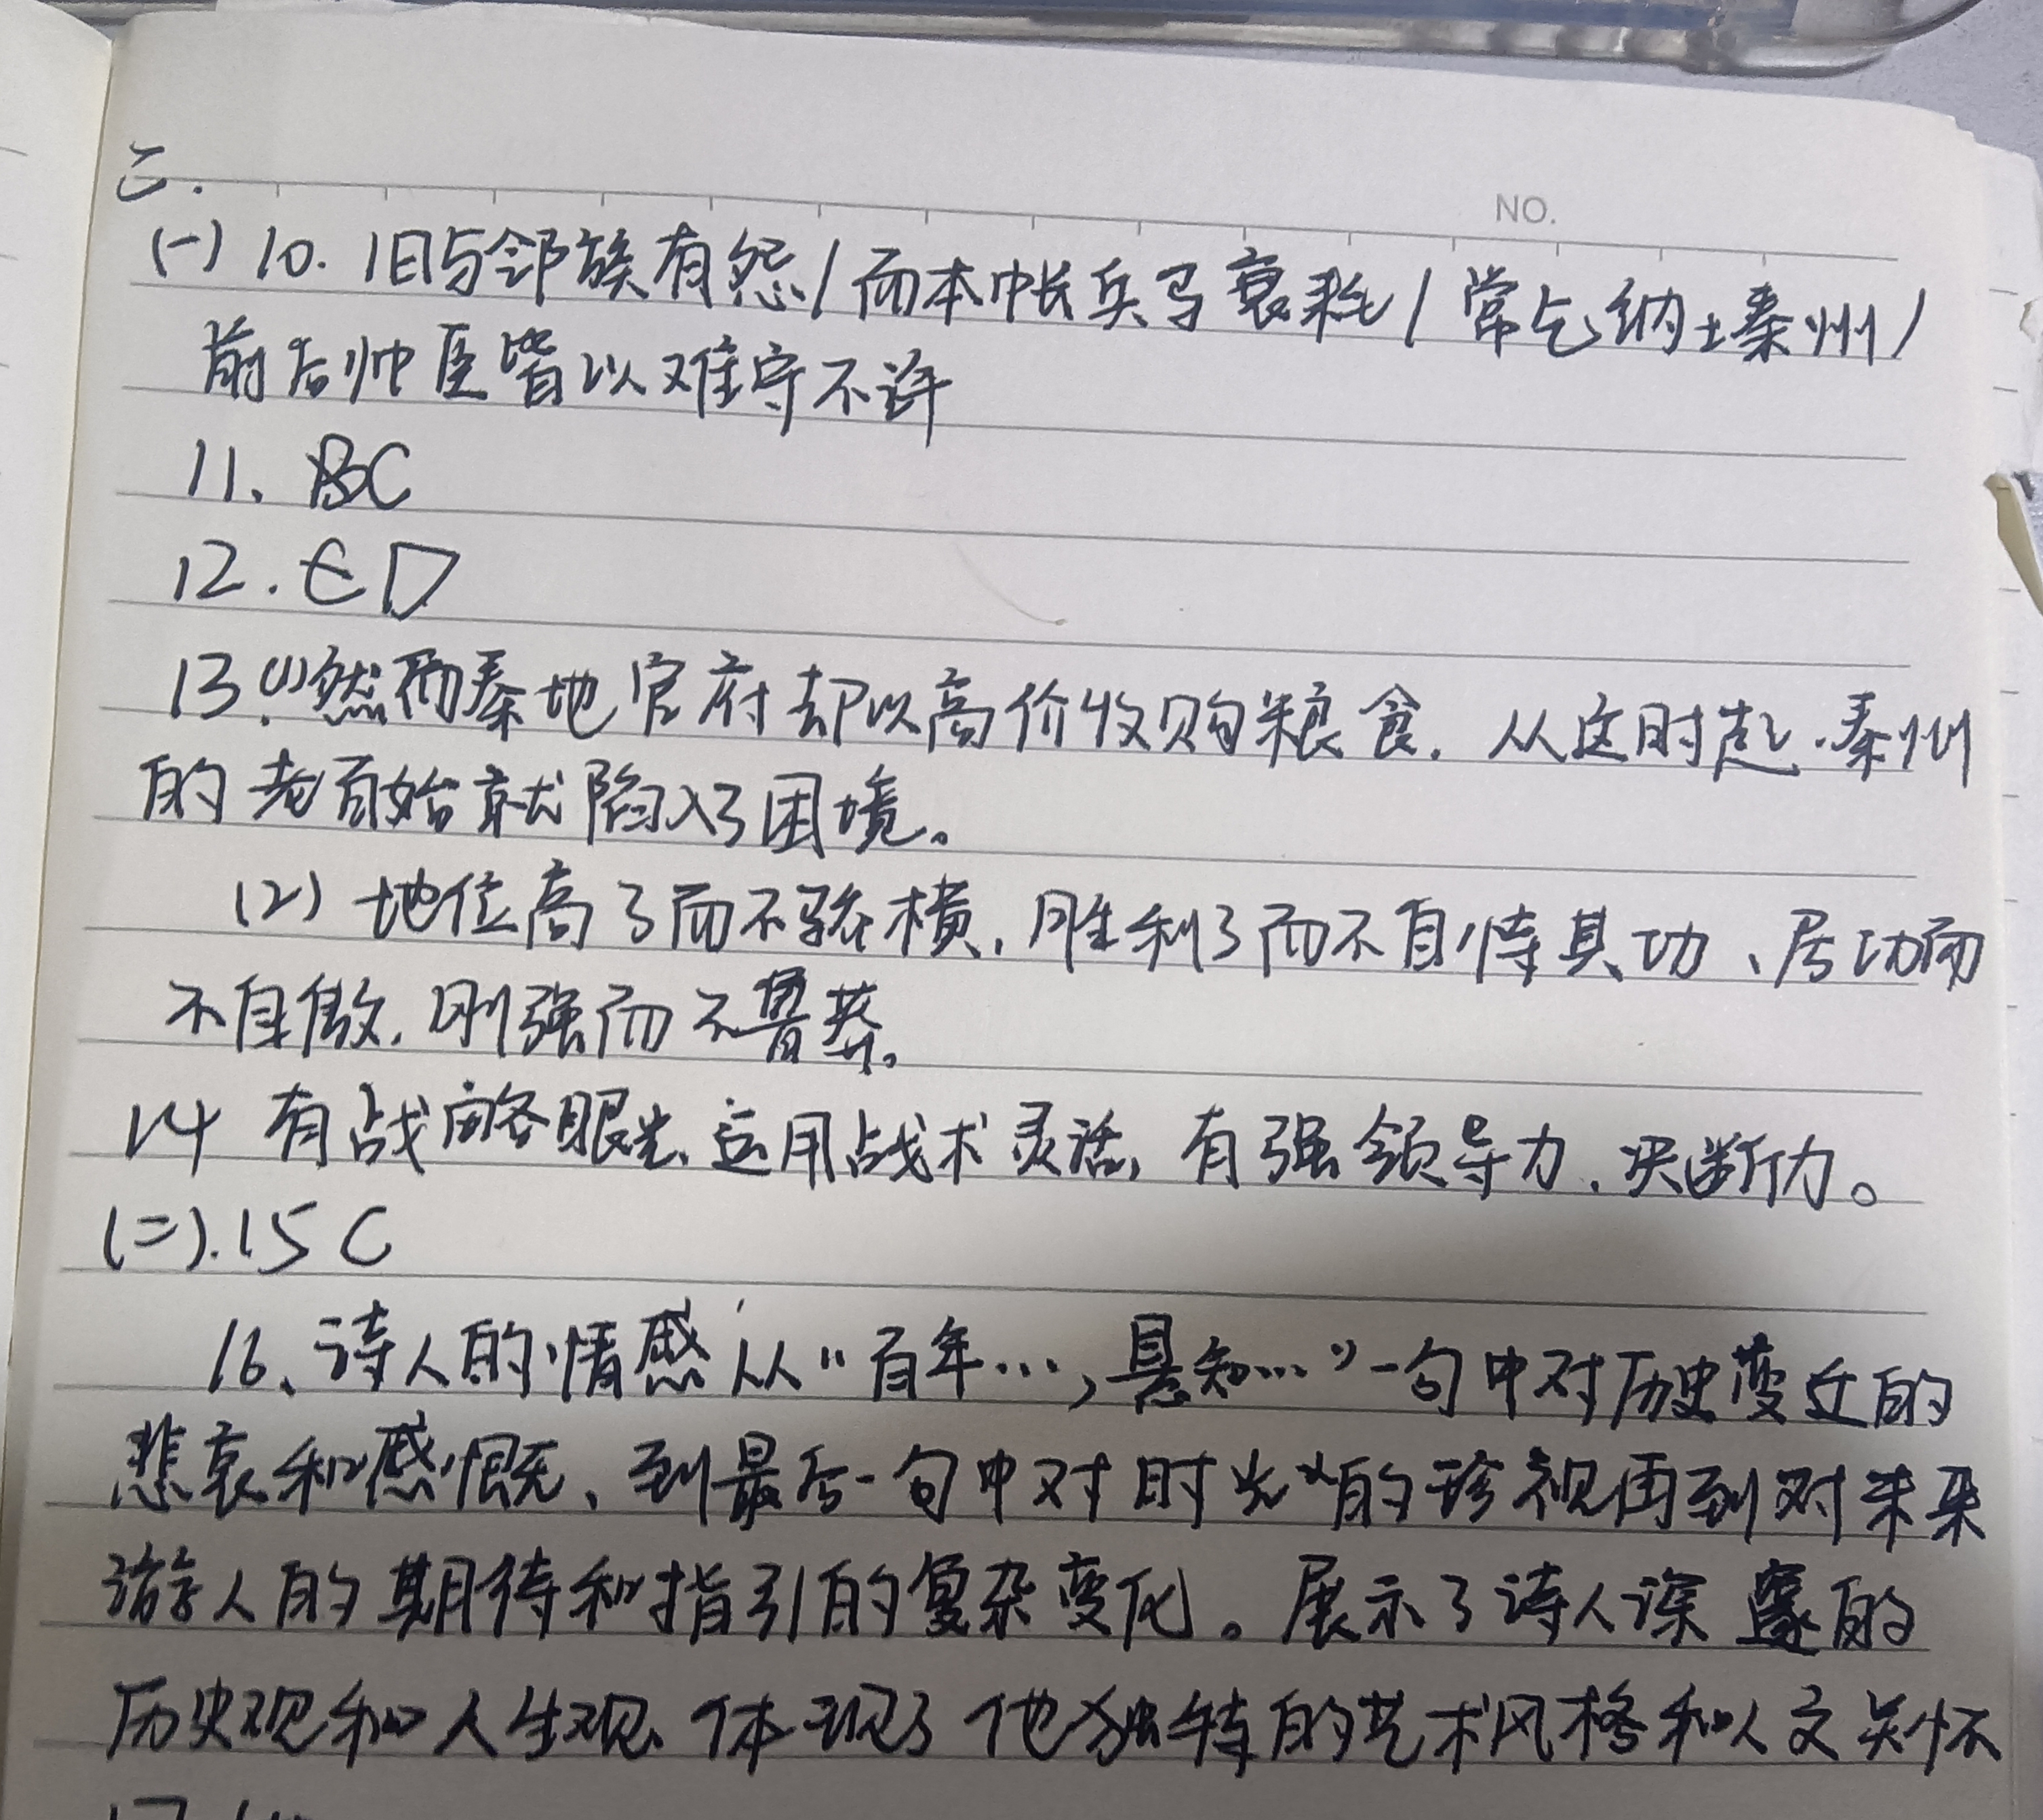 二.
NO.
(一) 10. 旧与邻族有怨/而本帐兵马衰耗/常乞纳土秦州/
前后帅臣皆以难守不许
11. BC
12. ED
13.(1)然而秦地官府却以高价收购粮食. 从这时起.秦州
的老百姓就陷入了困境。
(2) 地位高了而不骄横, 胜利了而不自恃其功、居功而
不自傲, 刚强而不鲁莽。
14 有战略眼光、运用战术灵活, 有强领导力、决断力。
(二).15 C
16、诗人的情感从“百年…,悬知…”一句中对历史变迁的
悲哀和感慨、到最后一句中对时光的珍视再到对未来
游人的期待和指引的复杂变化。展示了诗人深邃的
历史观和人生观、体现了他独特的艺术风格和人文关怀
17